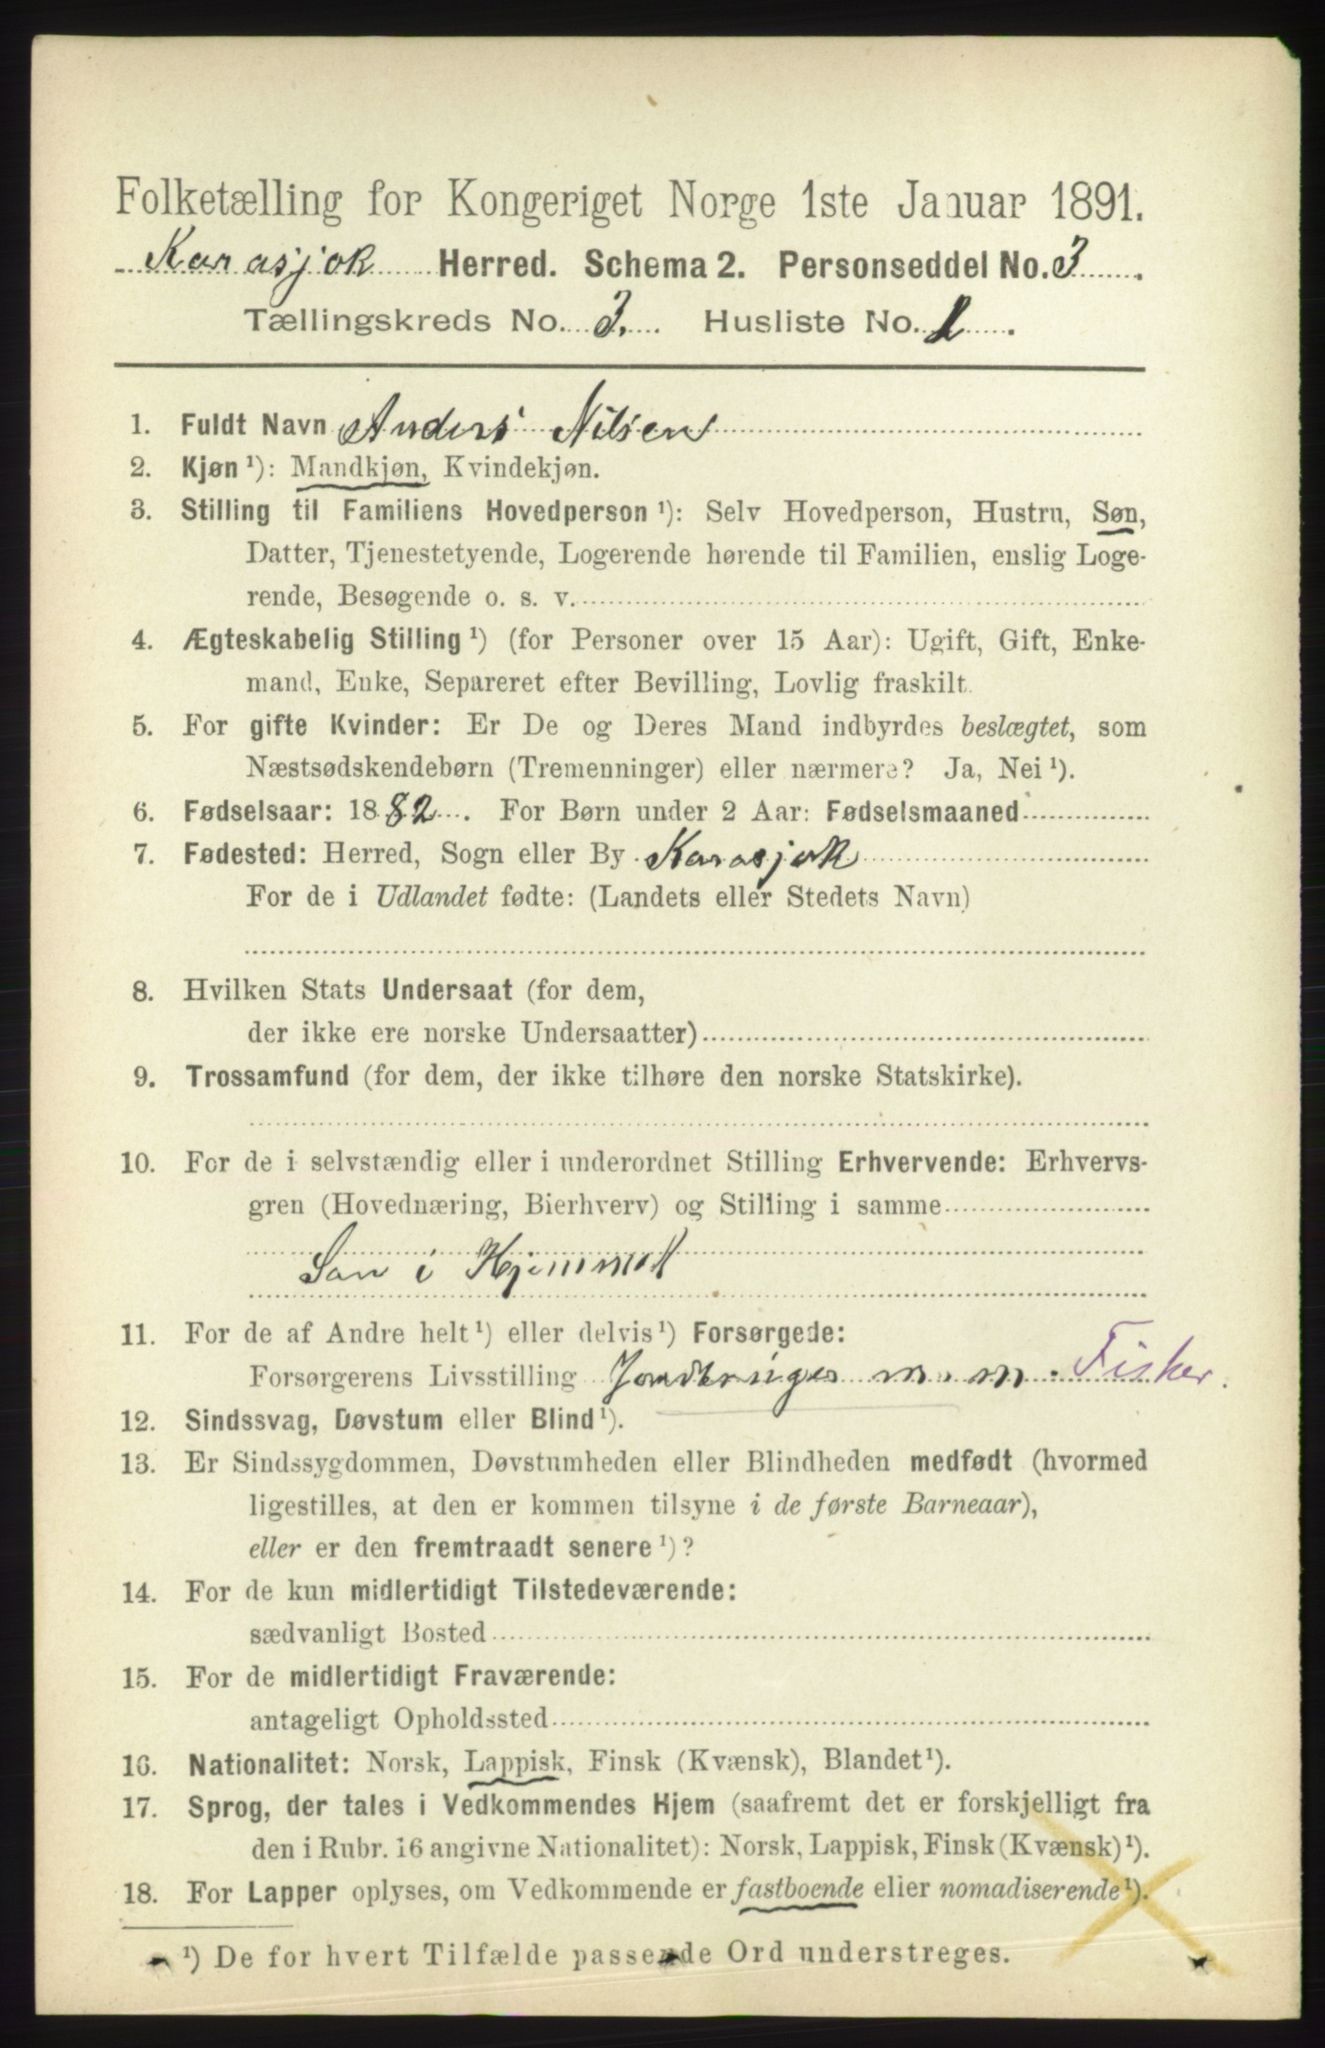 Folketælling for Kongeriget Norge 1ste Januar 1891.
Karasjok Herred. Schema 2. Personseddel No. 3.
Tællingskreds No. 3. Husliste No. 1.
1. Fuldt Navn Anders Nilsen
2. Kjøn ¹): Mandkjøn, Kvindekjøn.
3. Stilling til Familiens Hovedperson ¹): Selv Hovedperson, Hustru, Søn,
Datter, Tjenestetyende, Logerende hørende til Familien, enslig Loge-
rende, Besøgende o. s. v.
4. Ægteskabelig Stilling ¹) (for Personer over 15 Aar): Ugift, Gift, Enke-
mand, Enke, Separeret efter Bevilling, Lovlig fraskilt.
5. For gifte Kvinder: Er De og Deres Mand indbyrdes beslægtet, som
Næstsødskendebørn (Tremenninger) eller nærmere? Ja, Nei ¹).
6. Fødselsaar: 1882. For Børn under 2 Aar: Fødselsmaaned
7. Fødested: Herred, Sogn eller By Karasjok
For de i Udlandet fødte: (Landets eller Stedets Navn)
8. Hvilken Stats Undersaat (for dem,
der ikke ere norske Undersaatter)
9. Trossamfund (for dem, der ikke tilhøre den norske Statskirke).
10. For de i selvstændig eller i underordnet Stilling Erhvervende: Erhvervs-
gren (Hovednæring, Bierhverv) og Stilling i samme
Søn i Hjemmet
11. For de af Andre helt ¹) eller delvis ¹) Forsørgede:
Forsørgerens Livsstilling Jordbruger m. m. Fisker.
12. Sindssvag, Døvstum eller Blind ¹).
13. Er Sindssygdommen, Døvstumheden eller Blindheden medfødt (hvormed
ligestilles, at den er kommen tilsyne i de første Barneaar),
eller er den fremtraadt senere ¹)?
14. For de kun midlertidigt Tilstedeværende:
sædvanligt Bosted
15. For de midlertidigt Fraværende:
antageligt Opholdssted
16. Nationalitet: Norsk, Lappisk, Finsk (Kvænsk), Blandet ¹).
17. Sprog, der tales i Vedkommendes Hjem (saafremt det er forskjelligt fra
den i Rubr. 16 angivne Nationalitet): Norsk, Lappisk, Finsk (Kvænsk) ¹).
18. For Lapper oplyses, om Vedkommende er fastboende eller nomadiserende ¹).
¹) De for hvert Tilfælde passende Ord understreges.